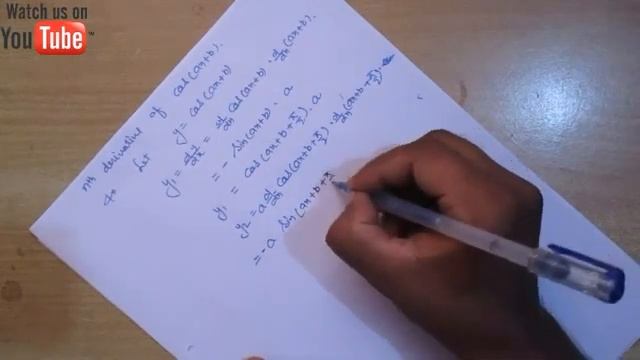 Watch us on
YouTube
nth derivative of cos(ax+b).
Let y = cos(ax+b)
y₁ = dy/dx = d/dx cos(ax+b) · d/dx (ax+b).
= - sin(ax+b) · a
y₁ = cos(ax+b+π/2) · a
y₂ = a d/dx cos(ax+b+π/2) · d/dx (ax+b+π/2) ·
= -a sin(ax+b+π